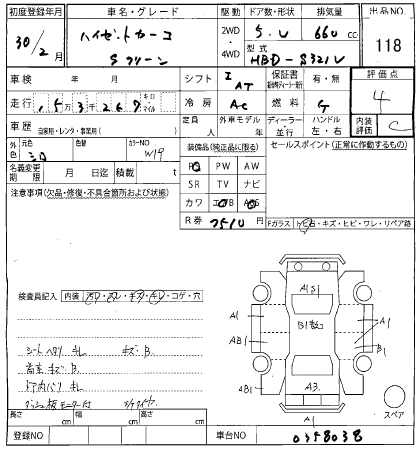 初度登録年月 車名・グレード 駆動 ドア数・形状 排気量 出品NO
30/2月 ハイゼットカーゴ 2WD 5.V 660cc 118
Sクリーン 4WD 型式 HBD-S321V
車検 年 月 シフト I AT 保証書 有・無 評価点
走行 15万3千267 キロ・マイル 冷房 AC 燃料 G 4
車歴 自家用・レンタ・事業用( ) 定員 人 外車モデル 年 ディーラー・並行 ハンドル 左・右 内装評価 C
外色 元色 シロ 色替 カラーNO W19 装備品(純正品に限る) セールスポイント(正常に作動するもの)
名義変更期限 月 日迄 積載 t PS PW AW
注意事項(欠品・修復・不具合箇所および状態) SR TV ナビ
カワ エアB ABS
R券 7510 Fガラス トビ石・キズ・ヒビ・ワレ・リペア跡
A1 S1
検査員記入 内装 ヨゴレ・スレ・キズ・キレ・コゲ・穴
A1 B1 A1
AB1 B1
シートヘタリ キレ キズ・B
AB1 A3
ドア内バリ キレ
スペア
A1
長さ cm 幅 cm 高さ cm
登録NO 車台NO 0358038